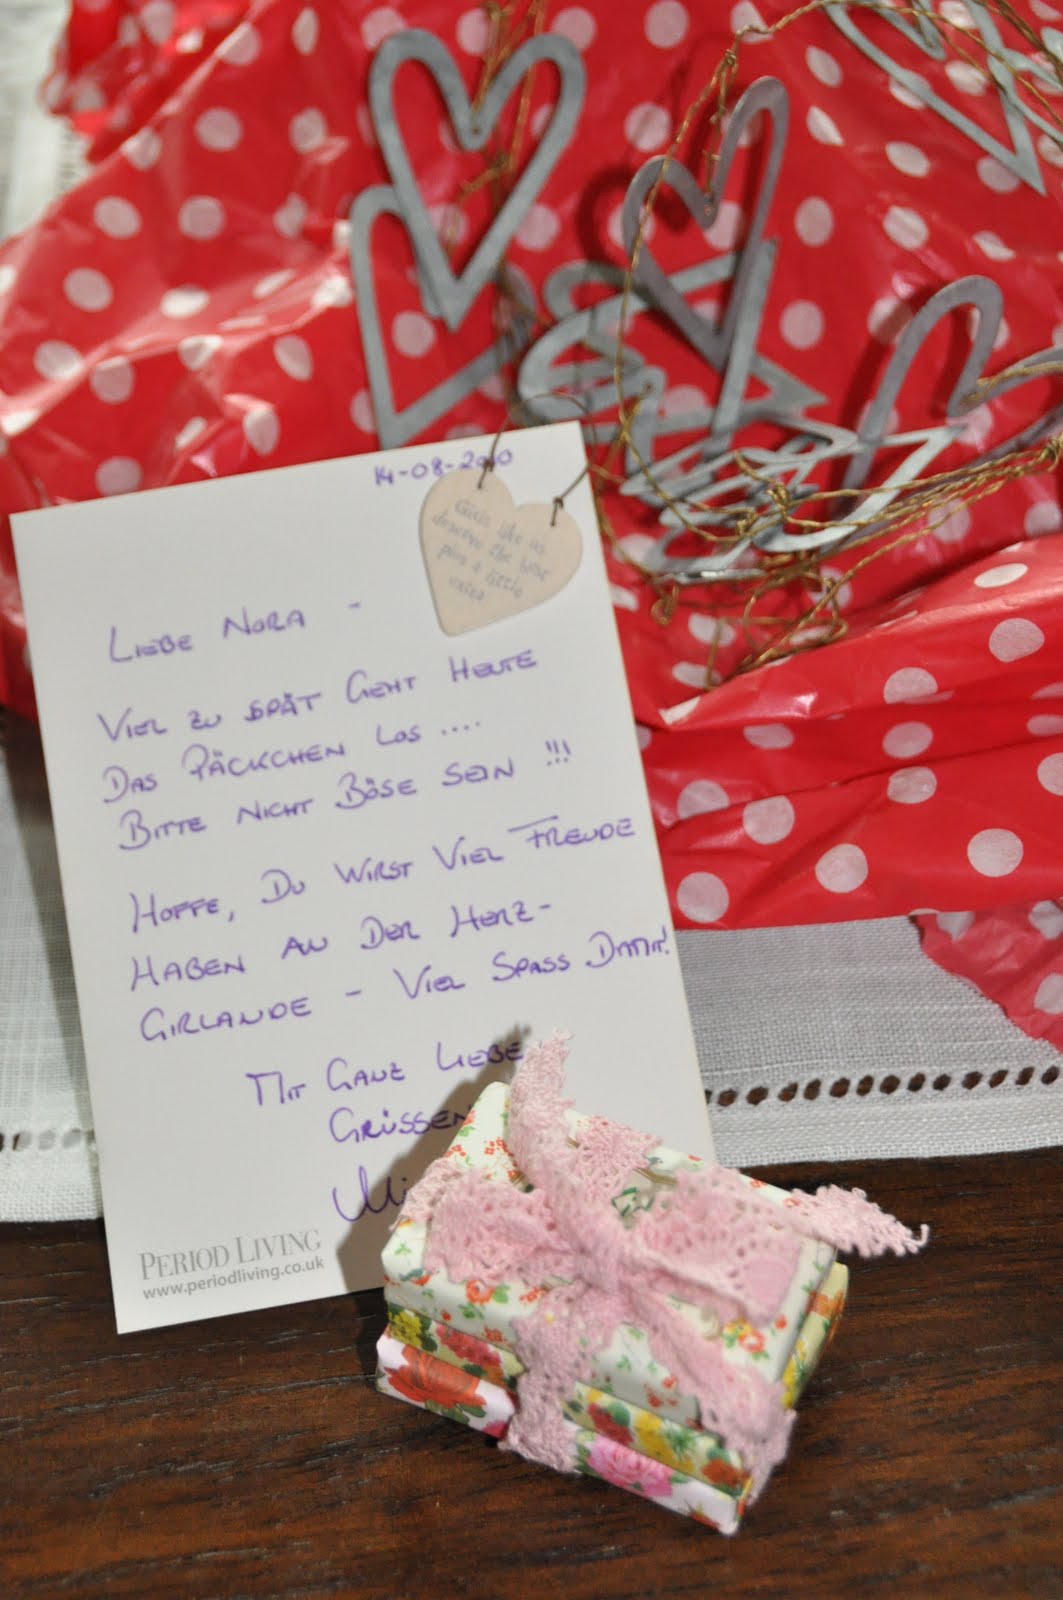 14-08-2010
Girls like us
deserve the best
plus a little
extra
LIEBE NORA -
VIEL ZU SPÄT GEHT HEUTE
DAS PÄCKCHEN LOS ....
BITTE NICHT BÖSE SEIN !!!
HOFFE, DU WIRST VIEL FREUDE
HABEN AN DER HERZ-
GIRLANDE - VIEL SPASS DAMIT!
MIT GANZ LIEBEN
GRÜSSEN
PERIOD LIVING
www.periodliving.co.uk